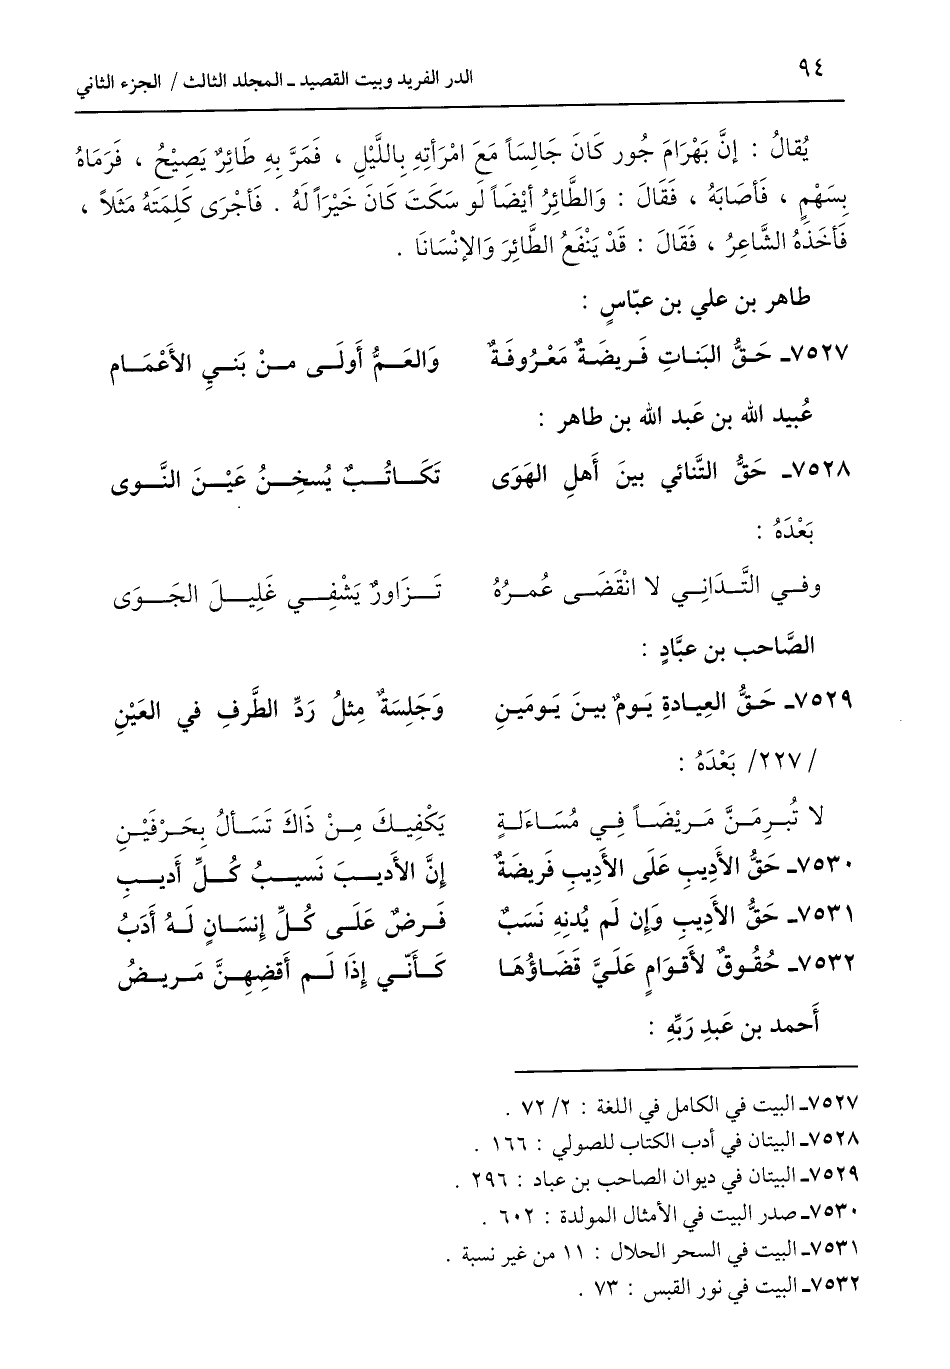 ٩٤
الدر الفريد وبيت القصيد ـ المجلد الثالث / الجزء الثاني
يُقالُ : إنَّ بَهْرَامَ جُور كَانَ جَالِسَاً مَعَ امْرَأتِهِ بِاللَّيْلِ ، فَمَرَّ بِهِ طَائِرٌ يَصِيْحُ ، فَرَمَاهُ
بِسَهْمٍ ، فَأصَابَهُ ، فَقَالَ : وَالطَّائِرُ أيْضَاً لَو سَكَتَ كَانَ خَيْرَاً لَهُ . فَأجْرَى كَلِمَتَهُ مَثَلاً ،
فَأخَذَهُ الشَّاعِرُ ، فَقَالَ : قَدْ يَنْفَعُ الطَّائِرَ وَالإنْسَانَا .
طاهر بن علي بن عبّاسٍ :
٧٥٢٧ـ حَقُّ البَناتِ فَريضَةٌ مَعْرُوفَةٌ وَالعَمُّ أَولَى مِنْ بَنيِ الأَعْمَامِ
عُبيد الله بن عَبد الله بن طاهر :
٧٥٢٨ـ حَقُّ التَّنائي بينَ أَهلِ الهَوَى تَكَاتُبٌ يُسخِنُ عَيْنَ النَّوى
بَعْدَهُ :
وفي التَّدَانِي لا انْقَضَى عُمرُهُ تَزاورٌ يَشْفِي غَلِيلَ الجَوَى
الصَّاحب بن عبَّادٍ :
٧٥٢٩ـ حَقُّ العِيادةِ يَومٌ بينَ يَومَينِ وَجَلِسَةٌ مِثلُ رَدِّ الطَّرفِ في العَيْنِ
/ ٢٢٧/ بَعْدَهُ :
لا تُبرِمَنَّ مَريْضَاً فِي مُسَاءَلَةٍ يَكْفِيكَ مِنْ ذَاكَ تَسَألُ بِحَرْفَيْنِ
٧٥٣٠ـ حَقُّ الأَدِيبِ عَلَى الأَدِيبِ فَريضَةٌ إنَّ الأَديبَ نَسيبُ كُلِّ أَديبِ
٧٥٣١ـ حَقُّ الأَديبِ وَإن لَم يُدنِهِ نَسَبٌ فَرضٌ عَلَى كُلِّ إنسَانٍ لَهُ أَدَبُ
٧٥٣٢ـ حُقُوقٌ لأَقوَامٍ عَلَيَّ قَضَاؤُهَا كَأنّي إذَا لَم أَقضِهِنَّ مَريضُ
أَحمد بن عَبدِ رَبِّهِ :
٧٥٢٧ـ البيت في الكامل في اللغة : ٢/ ٧٢ .
٧٥٢٨ـ البيتان في أدب الكتاب للصولي : ١٦٦ .
٧٥٢٩ـ البيتان في ديوان الصاحب بن عباد : ٢٩٦ .
٧٥٣٠ـ صدر البيت في الأمثال المولدة : ٦٠٢ .
٧٥٣١ـ البيت في السحر الحلال : ١١ من غير نسبة .
٧٥٣٢ـ البيت في نور القبس : ٧٣ .